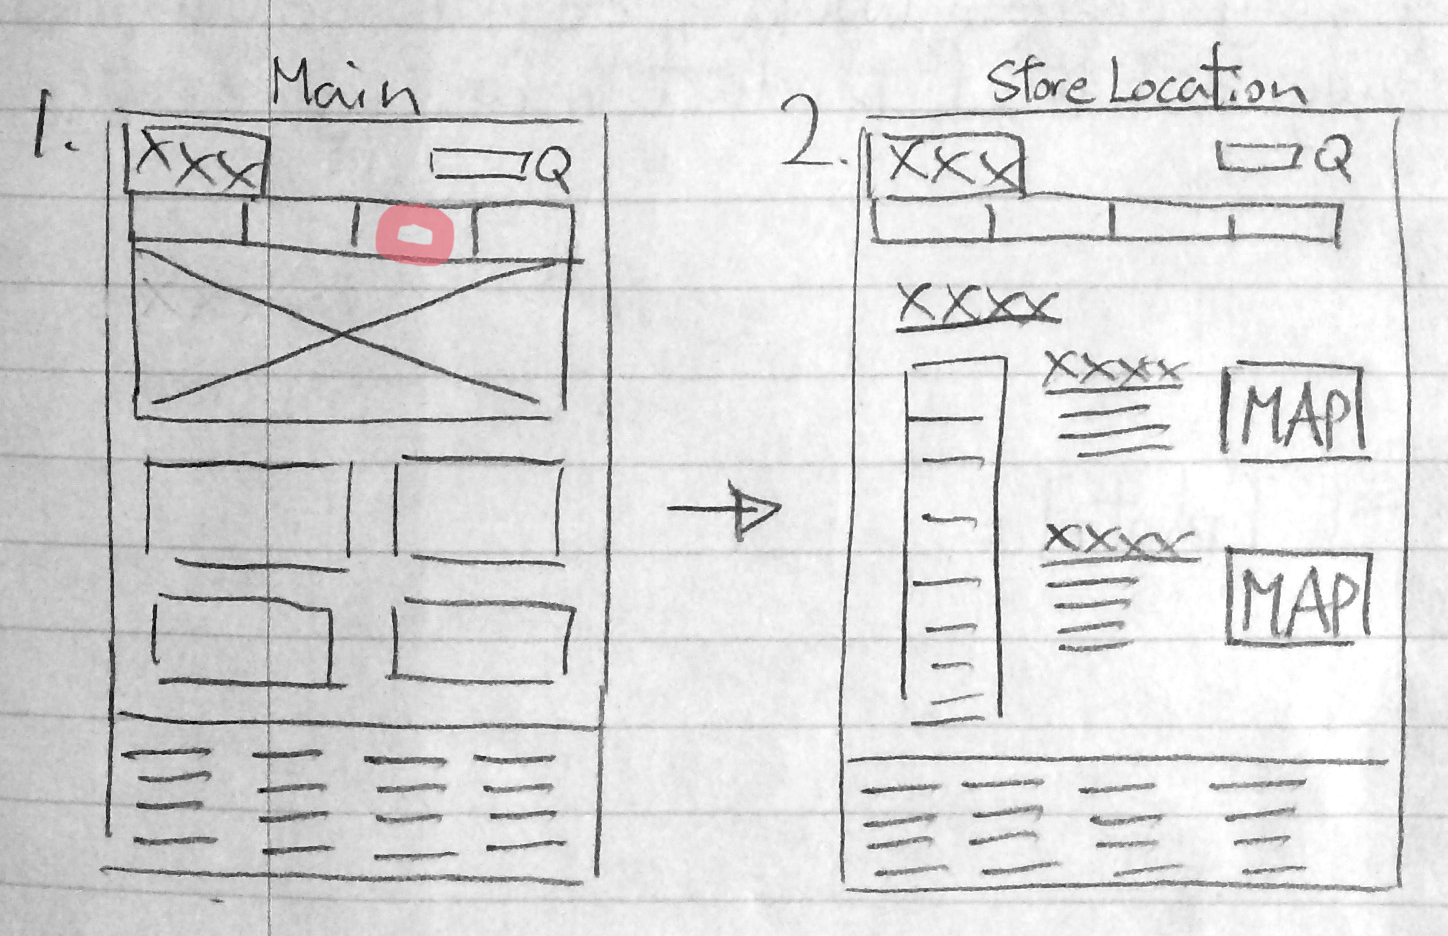 1. Main
XXX Q
2. Store Location
XXX Q
XXXX
XXXX
MAP
XXXX
MAP